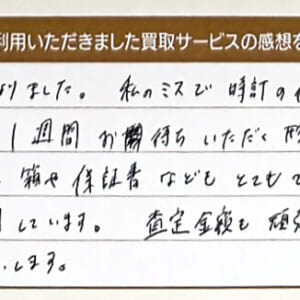 利用いただきました買取サービスの感想を
なりました。 私のミスで 時計の
1週間 お待ちいただく 形
箱や 保証書 なども とても
しています。 査定金額も 頑
します。